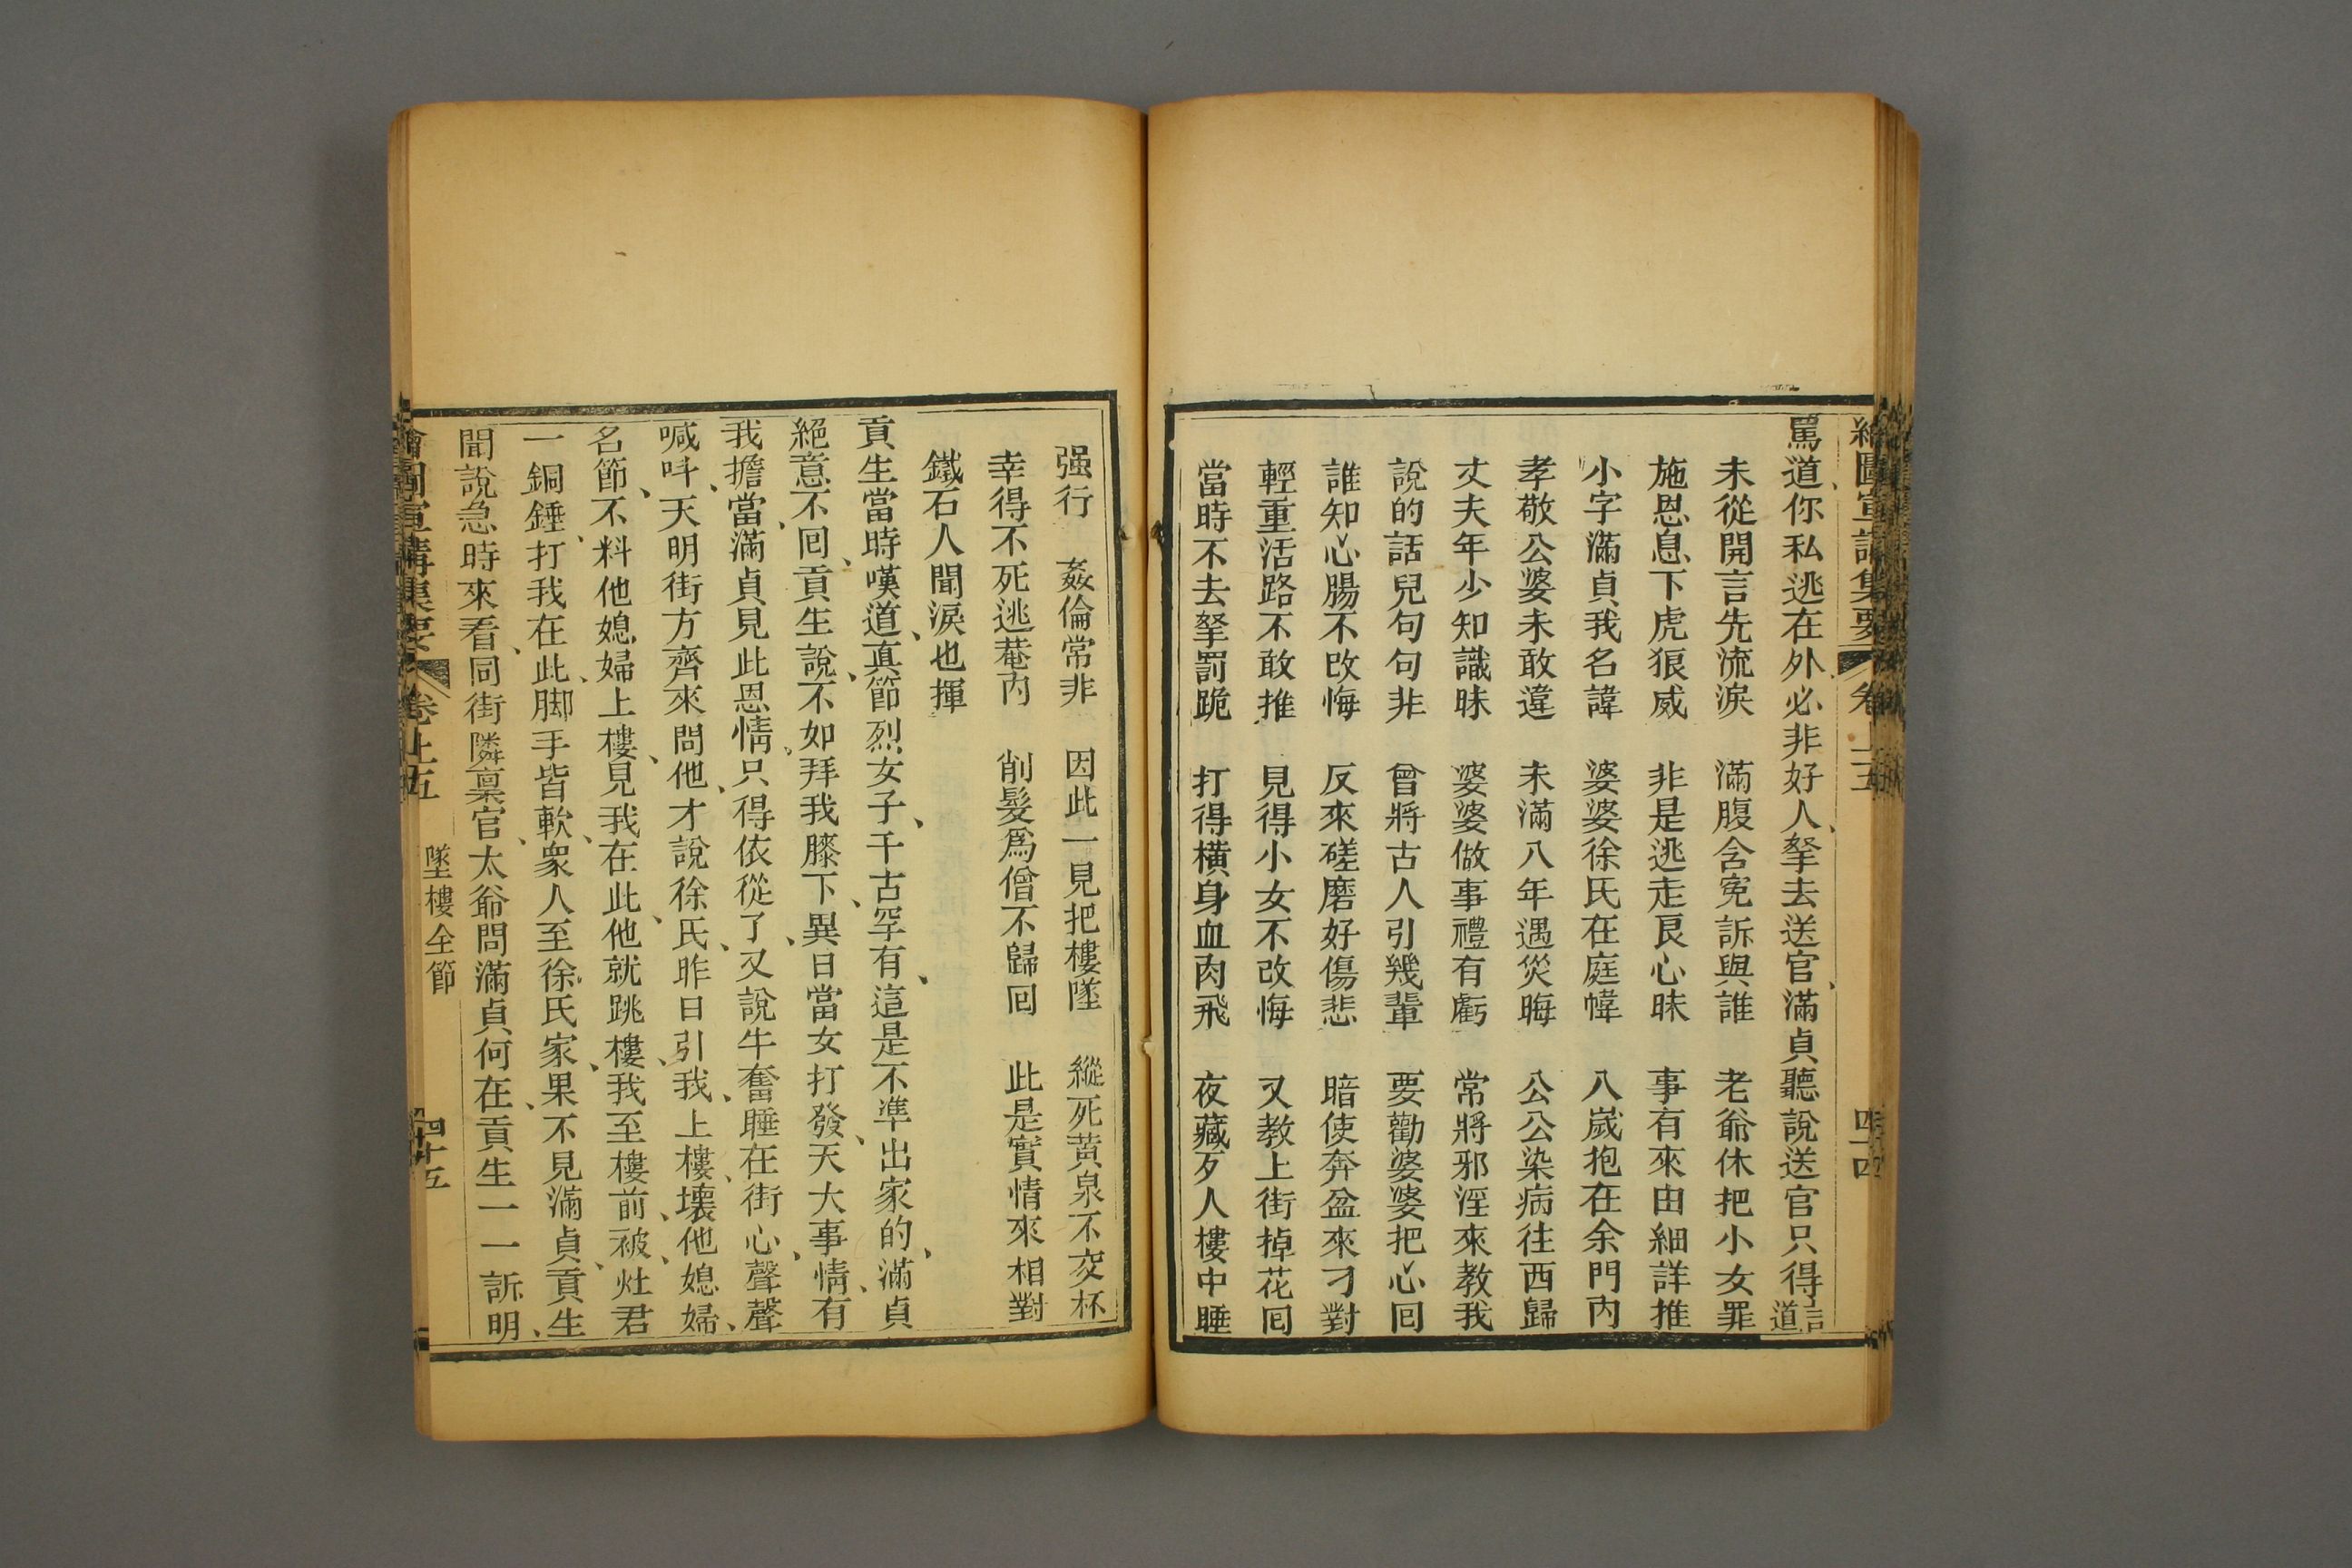 繪圖宣講集要 卷上五 四十四
罵道、你私逃在外、必非好人、拏去送官、滿貞聽說送官只得言道
未從開言先流淚 滿腹含寃訴與誰 老爺休把小女罪
施恩息下虎狼威 非是逃走良心昧 事有來由細詳推
小字滿貞我名諱 婆婆徐氏在庭幃 八嵗抱在余門內
孝敬公婆未敢違 未滿八年遇災晦 公公染病往西歸
丈夫年少知識昧 婆婆做事禮有虧 常將邪淫來教我
說的話兒句句非 曾將古人引幾輩 要勸婆婆把心囘
誰知心腸不改悔 反來磋磨好傷悲 暗使奔盆來刁對
輕重活路不敢推 見得小女不改悔 又教上街掉花囘
當時不去拏罰跪 打得橫身血肉飛 夜藏歹人樓中睡
强行 姦倫常非 因此一見把樓墜 縱死黃泉不交杯
幸得不死逃菴內 削髮爲僧不歸囘 此是實情來相對
鐵石人聞淚也揮
貢生當時嘆道、真節烈女子、千古罕有、這是不準出家的、滿貞
絕意不囘、貢生說、不如拜我膝下、異日當女打發、天大事情、有
我擔當、滿貞見此恩情、只得依從了、又說牛奮睡在街心、聲聲
喊呌、天明街方齊來問他、才說徐氏、昨日引我、上樓、壞他媳婦、
名節、不料他媳婦上樓、見我在此、他就跳樓、我至樓前、被灶君
一銅錘、打我在此、脚手皆軟、衆人至徐氏家、果不見滿貞、貢生
聞說急時來看、同街隣稟官、太爺問滿貞何在、貢生一一訴明、
繪圖宣講集要 卷上五 墜樓全節 四十五